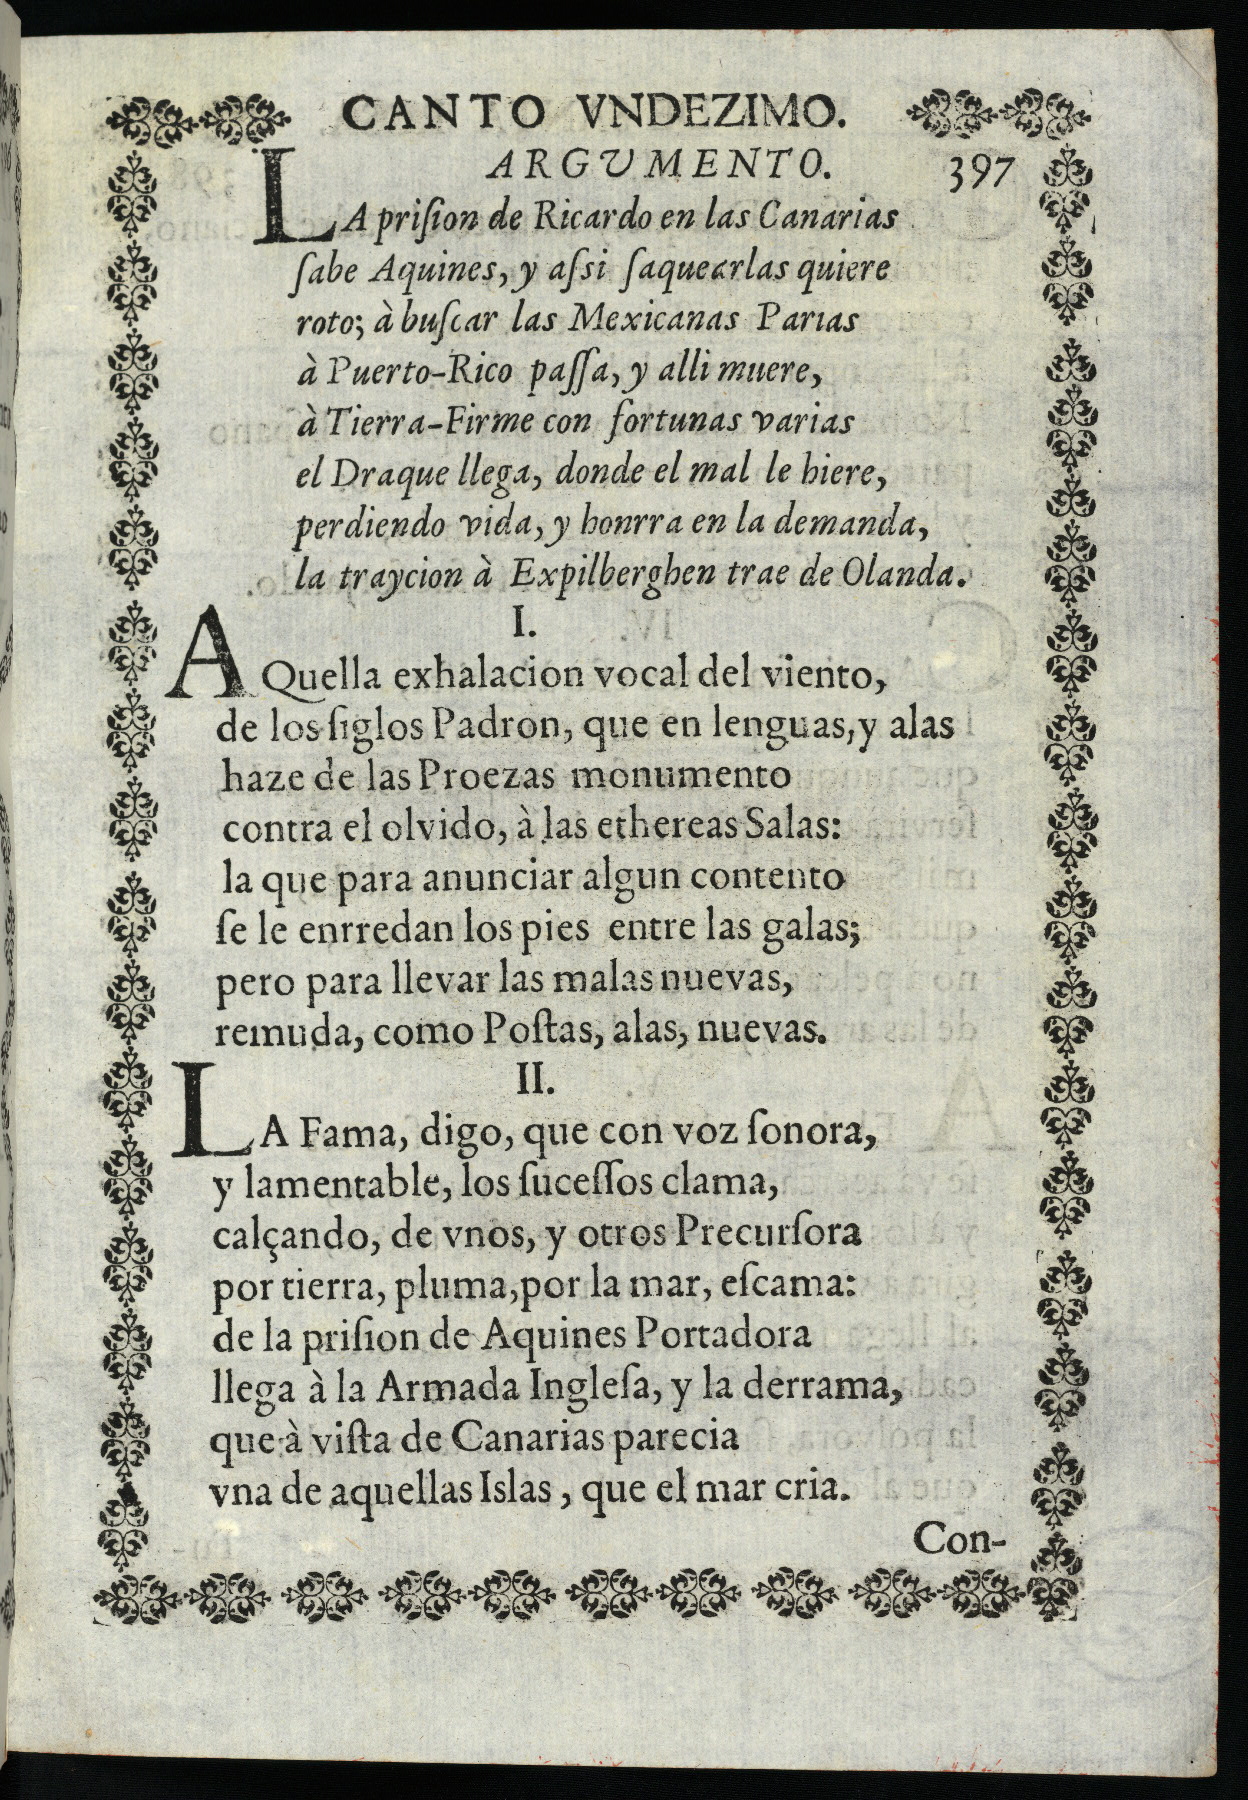 CANTO VNDEZIMO.
ARGVMENTO. 397
LA priſion de Ricardo en las Canarias
ſabe Aquines, y aſsi ſaquearlas quiere
roto; à buſcar las Mexicanas Parias
à Puerto-Rico paſſa, y alli muere,
à Tierra-Firme con fortunas varias
el Draque llega, donde el mal le hiere,
perdiendo vida, y honrra en la demanda,
la traycion à Expilberghen trae de Olanda.
I.
AQuella exhalacion vocal del viento,
de los ſiglos Padron, que en lenguas, y alas
haze de las Proezas monumento
contra el olvido, à las ethereas Salas:
la que para anunciar algun contento
ſe le enrredan los pies entre las galas;
pero para llevar las malas nuevas,
remuda, como Poſtas, alas, nuevas.
II.
LA Fama, digo, que con voz ſonora,
y lamentable, los ſuceſſos clama,
calçando, de vnos, y otros Precurſora
por tierra, pluma, por la mar, eſcama:
de la priſion de Aquines Portadora
llega à la Armada Ingleſa, y la derrama,
que à viſta de Canarias parecia
vna de aquellas Islas, que el mar cria.
Con-